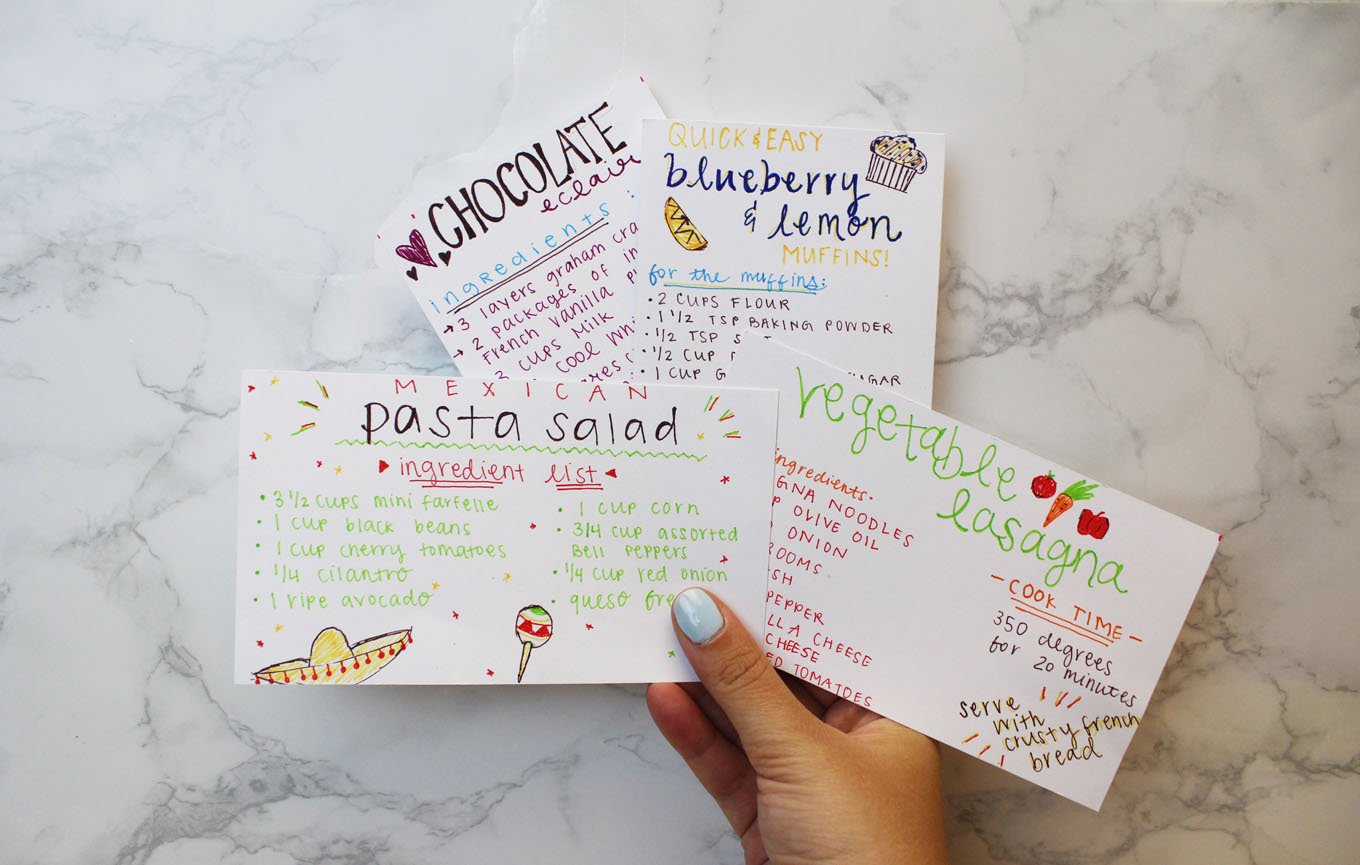 CHOCOLATE
eclair
ingredients:
→ 3 layers graham cra
→ 2 packages of in
French vanilla
3 cups milk
cool whi
QUICK & EASY
blueberry
& lemon
MUFFINS!
for the muffins:
• 2 CUPS FLOUR
• 1 1/2 TSP BAKING POWDER
• 1/2 TSP
• 1/2 CUP
• 1 CUP G
MEXICAN
pasta salad
ingredient list
• 3 1/2 cups mini farfelle
• 1 cup black beans
• 1 cup cherry tomatoes
• 1/4 cilantro
• 1 ripe avocado
• 1 cup corn
• 3/4 cup assorted
Bell peppers
• 1/4 cup red onion
• queso fre
vegetable
lasagna
ingredients:
GNA NOODLES
OLIVE OIL
ONION
ROOMS
SH
PEPPER
LLA CHEESE
CHEESE
ED TOMATOES
- COOK TIME -
350 degrees
for 20 minutes
serve
with
crusty french
bread